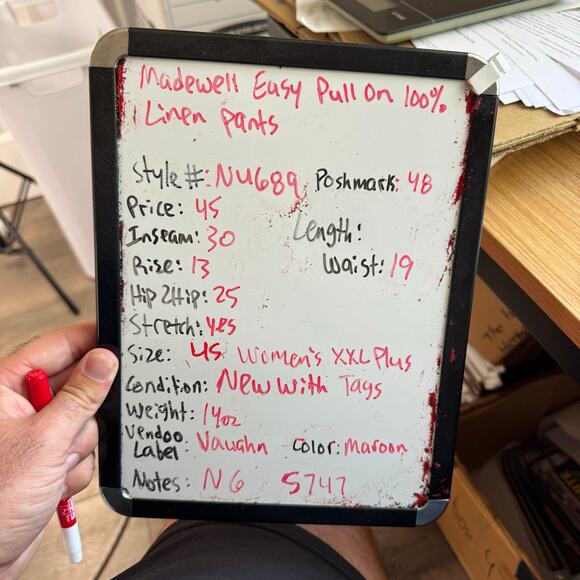 Madewell Easy Pull On 100%
Linen pants
Style #: NU689 Poshmark: 48
Price: 45
Inseam: 30 Length:
Rise: 13 Waist: 19
Hip 2 Hip: 25
Stretch: yes
Size: US Women's XXL Plus
Condition: New With Tags
Weight: 14oz
Vendoo
Label: Vaughn Color: Maroon
Notes: N6 5747